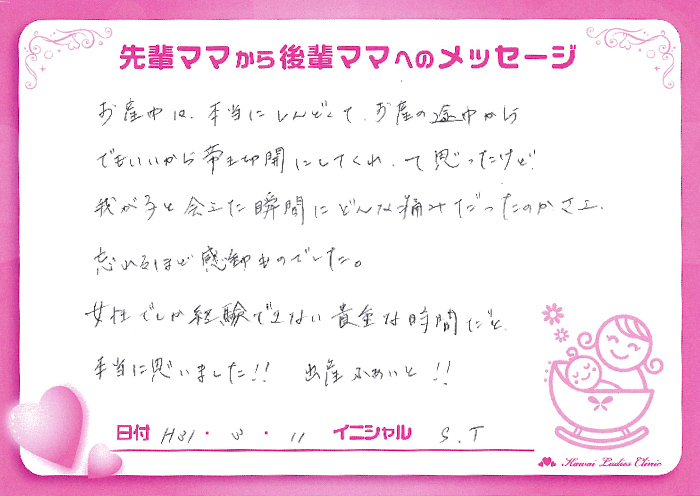 先輩ママから後輩ママへのメッセージ
お産中は、本当にしんどくて、お産の途中から
でもいいから帝王切開にしてくれ、って思ったけど
我が子と会えた瞬間にどんな痛みだったのかさえ
忘れるほど感動ものでした。
女性でしか経験できない貴重な時間だと
本当に思いました!! 出産ふぁいと!!
日付 H31・3・11 イニシャル S.T
Kawai Ladies Clinic